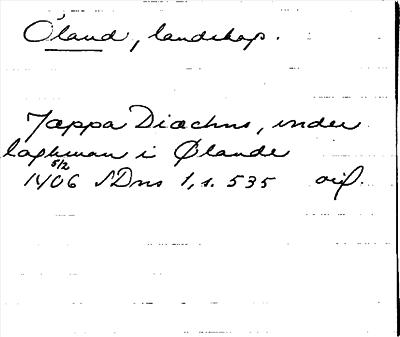 Öland, landskap.
Jæppa Diæchns, under
laghman i Ølande
5/2
1406 SDns 1, s. 535 oif.